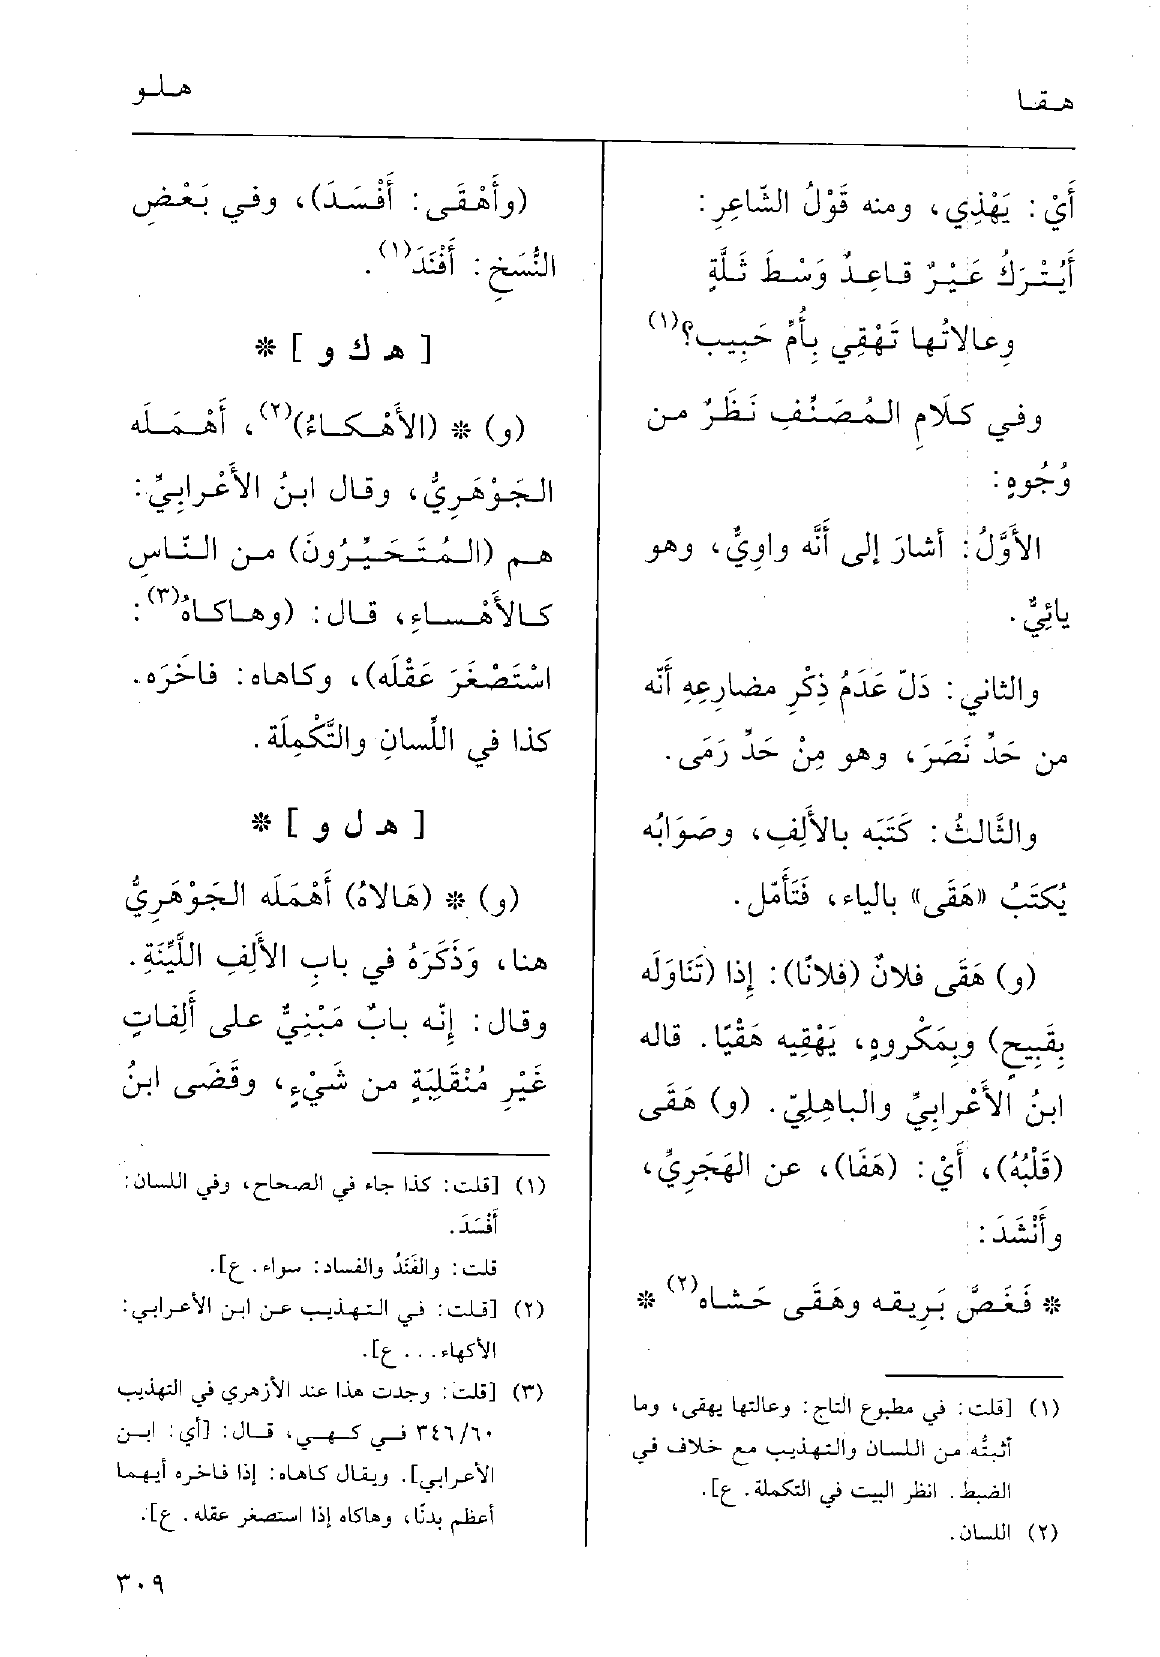 هـقـا
هـلـو
أَيْ: يَهْذِي، ومنه قَوْلُ الشّاعِرِ:
أَيُتْرَكُ عَيْرٌ قاعِدٌ وَسْطَ ثَلَّةٍ
وعالاتُها تَهْقِي بِأُمِّ حَبِيب؟(١)
وفي كلَامِ المُصَنِّفِ نَظَرٌ من
وُجُوهٍ:
الأَوَّلُ: أشارَ إلى أَنَّه واوِيٌّ، وهو
يائِيٌّ.
والثاني: دَلّ عَدَمُ ذِكْرِ مضارِعِهِ أنّه
من حَدِّ نَصَرَ، وهو مِنْ حَدِّ رَمَى.
والثَّالثُ: كَتَبَه بالأَلِفِ، وصَوَابُه
يُكتَبُ «هَقَى» بالياء، فَتَأَمّل.
(و) هَقَى فلانٌ (فلانًا): إذا (تَنَاوَلَه
بِقَبِيحٍ) وبِمَكْروهٍ، يَهْقِيه هَقْيًا. قاله
ابنُ الأَعْرابِيِّ والباهِلِيّ. (و) هَقَى
(قَلْبُهُ)، أَيْ: (هَفَا)، عن الهَجَرِيِّ،
وأَنْشَدَ:
* فَغَصَّ بَرِيقه وهَقَى حَشاه(٢) *
(١) [قلت: في مطبوع التاج: وعالتها يهقى، وما
أثبتُّه من اللسان والتهذيب مع خلاف في
الضبط. انظر البيت في التكملة. ع].
(٢) اللسان.
(وأَهْقَى: أَفْسَدَ)، وفي بَعْضِ
النُّسَخِ: أَفْنَدَ(١).
[ هـ ك و ] *
(و) * (الأَهْكاءُ)(٢)، أَهْمَلَه
الجَوْهَرِيُّ، وقال ابنُ الأَعْرابِيِّ:
هم (المُتَحَيِّرُونَ) من النّاسِ
كالأَهْساءِ، قال: (وهاكاهُ(٣):
اسْتَصْغَرَ عَقْلَه)، وكاهاه: فاخَرَه.
كذا في اللِّسانِ والتَّكْمِلَة.
[ هـ ل و ] *
(و) * (هَالاهُ) أَهْمَلَه الجَوْهَرِيُّ
هنا، وَذَكَرَهُ في بابِ الأَلِفِ اللَّيِّنَةِ.
وقال: إِنّه بابٌ مَبْنِيٌّ على أَلِفاتٍ
غَيْرِ مُنْقَلِبَةٍ من شَيْءٍ، وقَضَى ابنُ
(١) [قلت: كذا جاء في الصحاح، وفي اللسان:
أَفْسَدَ.
قلت: والفَنَدُ والفساد: سواء. ع].
(٢) [قلت: في التهذيب عن ابن الأعرابي:
الأكهاء... ع].
(٣) [قلت: وجدت هذا عند الأزهري في التهذيب
٣٤٦/٦٠ في كهي، قال: [أي: ابن
الأعرابي]. ويقال كاهاه: إذا فاخره أيهما
أعظم بدنًا، وهاكاه إذا استصغر عقله. ع].
٣٠٩